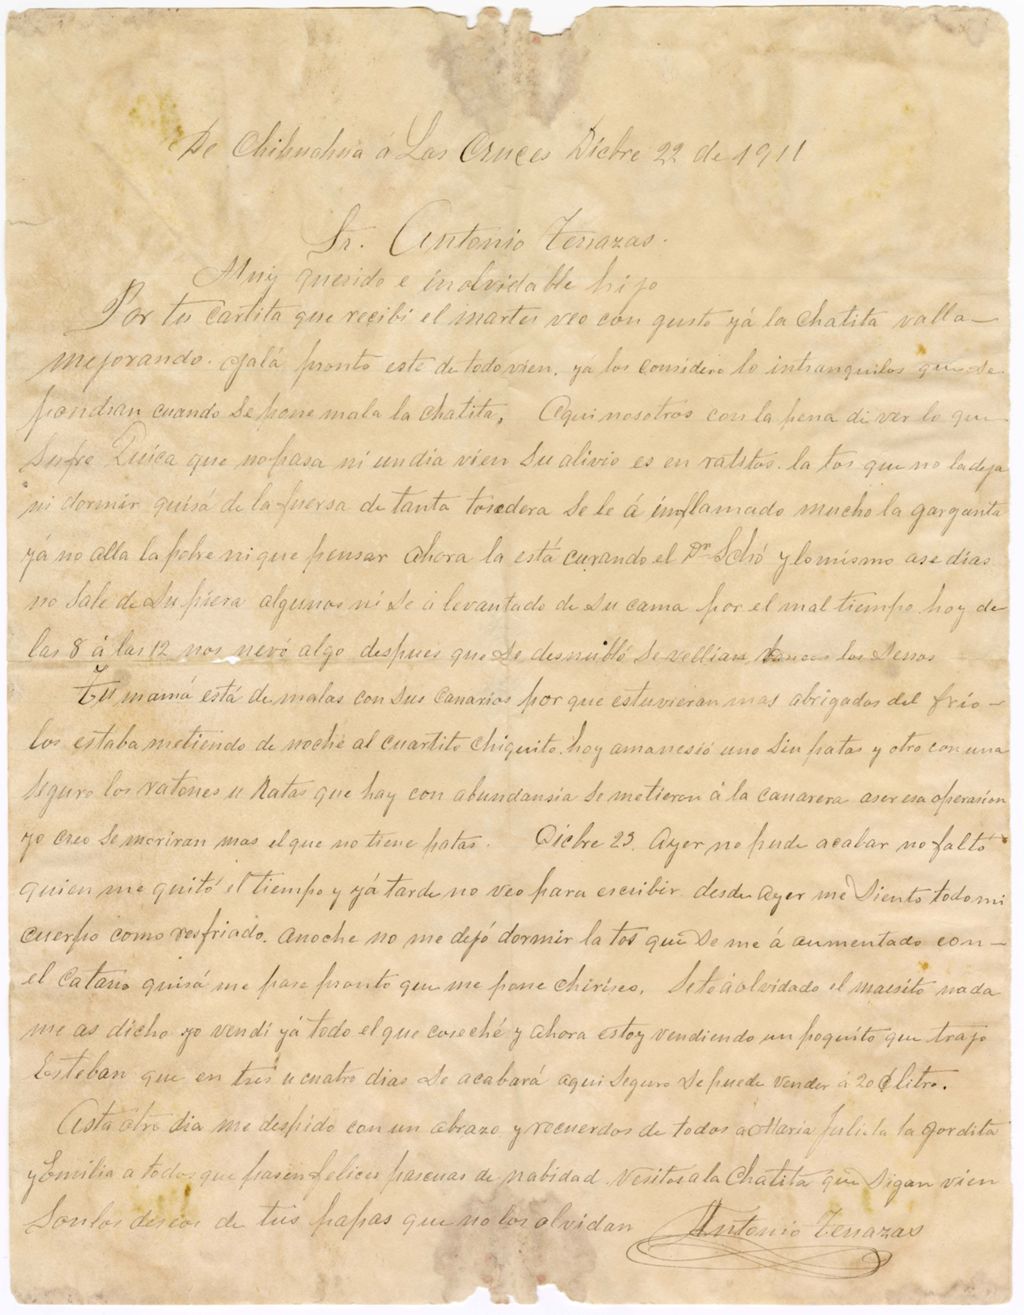 De Chihuahua á Las Cruces Dicbre 22 de 1911
Sr. Antonio Terrazas.
Muy querido e inolvidable hijo
Por tu cartita que recibi el martes veo con gusto yá la chatita valla
mejorando. ojalá pronto esté de todo vien. yá los considero lo intranquilos que se
pondran cuando se pone mala la chatita, Aqui nosotros con la pena di ver lo que
sufre Quica que no pasa ni un dia vien su alivio es en ratitos. la tos que no la deja
ni dormir quisá de la fuersa de tanta tosedera se le á inflamado mucho la garganta
yá no alla la pobre ni que pensar ahora la está curando el Dr. y lo mismo ase dias
no sale de su piesa algunos ni se á levantado de su cama por el mal tiempo. hoy de
las 8 á las 12 nos nevó algo despues que se desnubló se vellian los serros
Tu mamá está de malas con sus canarios por que estuvieran mas abrigados del frío
los estaba metiendo de noche al cuartito chiquito. hoy amanesió uno sin patas y otro con una
seguro los ratones u Ratas que hay con abundansia se metieron á la canarera aser esa operasion
yo creo se moriran mas el que no tiene patas. Dicbre 23. Ayer no pude acabar no faltó
quien me quitó el tiempo y yá tarde no veo para escribir. desde ayer me siento todo mi
cuerpo como resfriado. anoche no me dejó dormir la tos que se me á aumentado con
el cataro quisá me pase pronto que me pone chirisco. se te á olvidado el maisito nada
me as dicho yo vendi yá todo el que coseché y ahora estoy vendiendo un poquito que trajo
Esteban que en tres u cuatro dias se acabará aqui seguro se puede vender á 20¢ litro.
Asta otro dia me despido con un abrazo y recuerdos de todos a Maria Julieta la gordita
y Emilia a todos que pasen felices pascuas de nabidad vesitos a la Chatita que sigan vien
son los deseos de tus papas que no los olvidan Antonio Terrazas